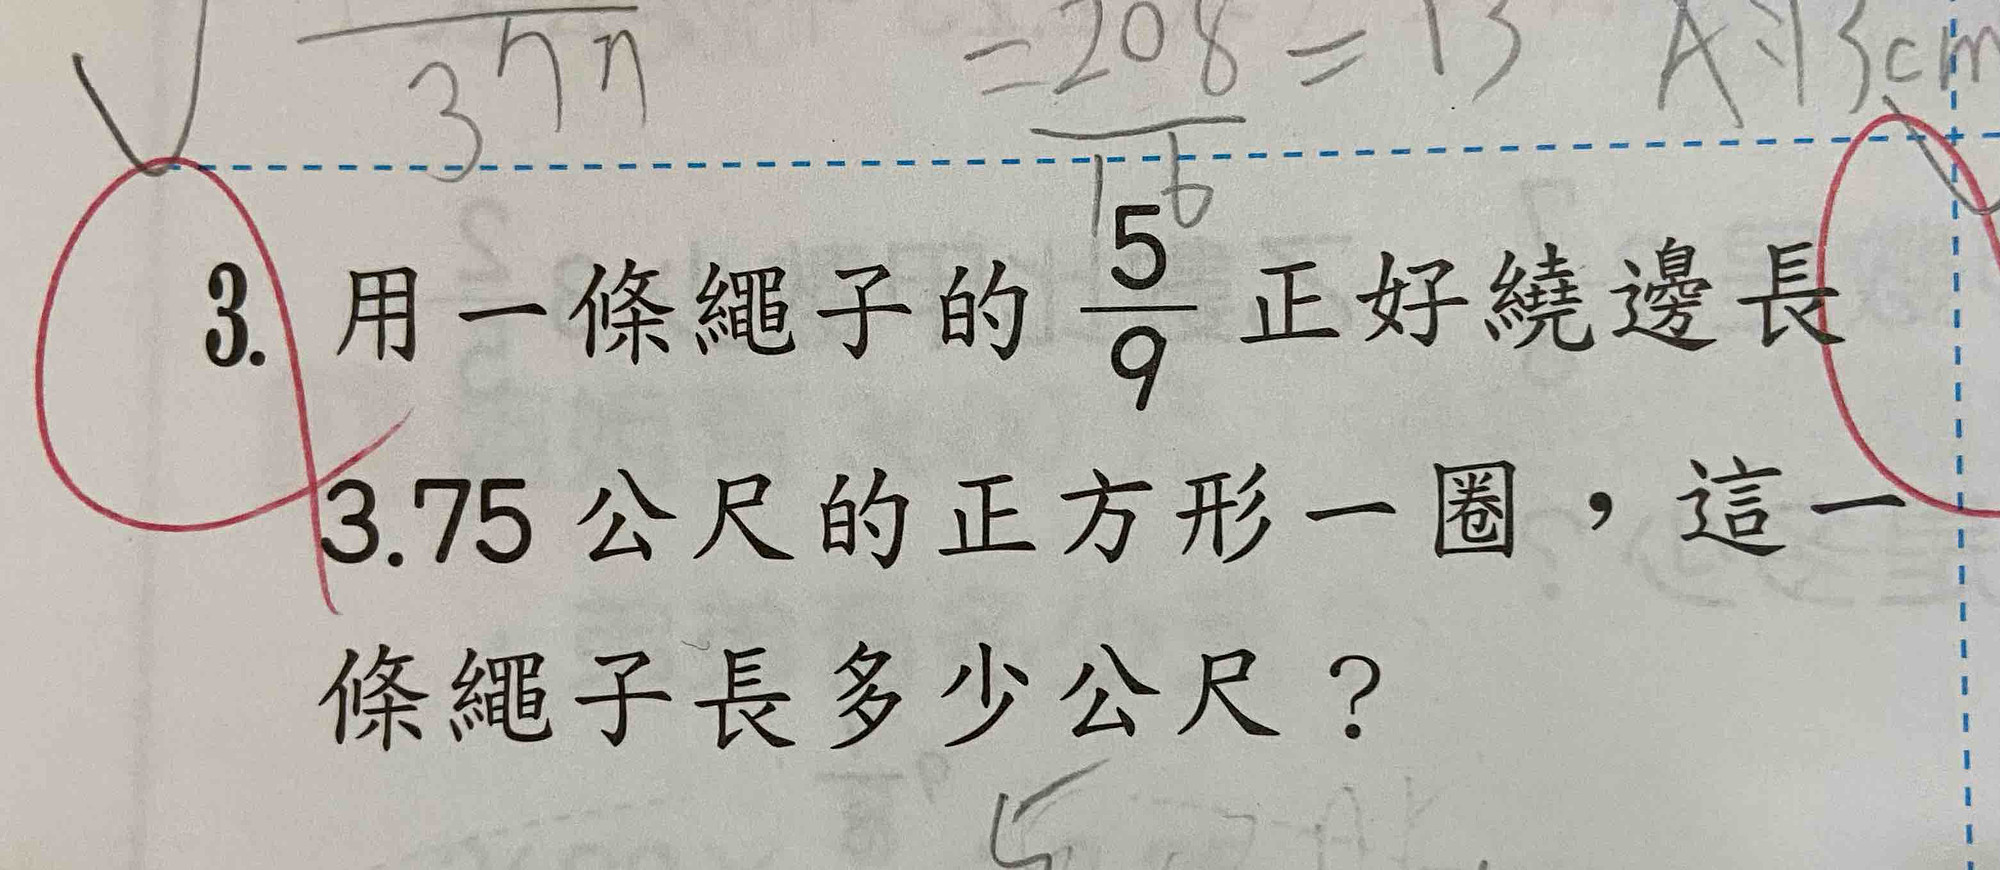 3 7 7
= 208/16 = 13 A:13cm
3. 用一條繩子的 5/9 正好繞邊長
3.75 公尺的正方形一圈,這一
條繩子長多少公尺?
5